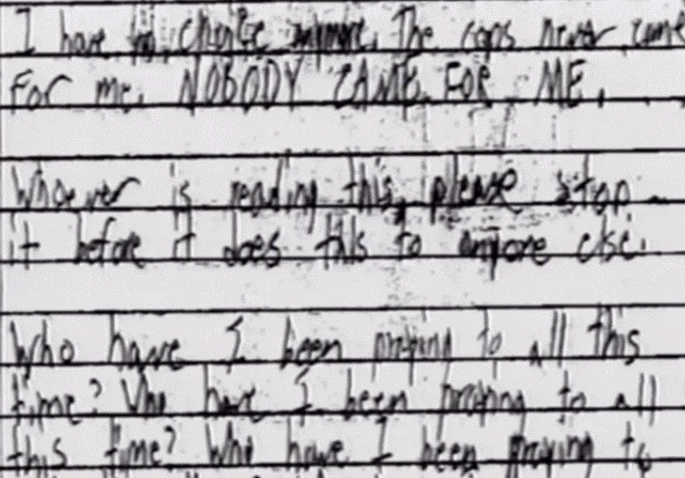 I have no choice anymore. The cops never came
For me. NOBODY CAME FOR ME.
Whoever is reading this, please stop
it before it does this to anyone else.
Who have I been praying to all this
time? Who have I been praying to all
this time? Who have I been praying to